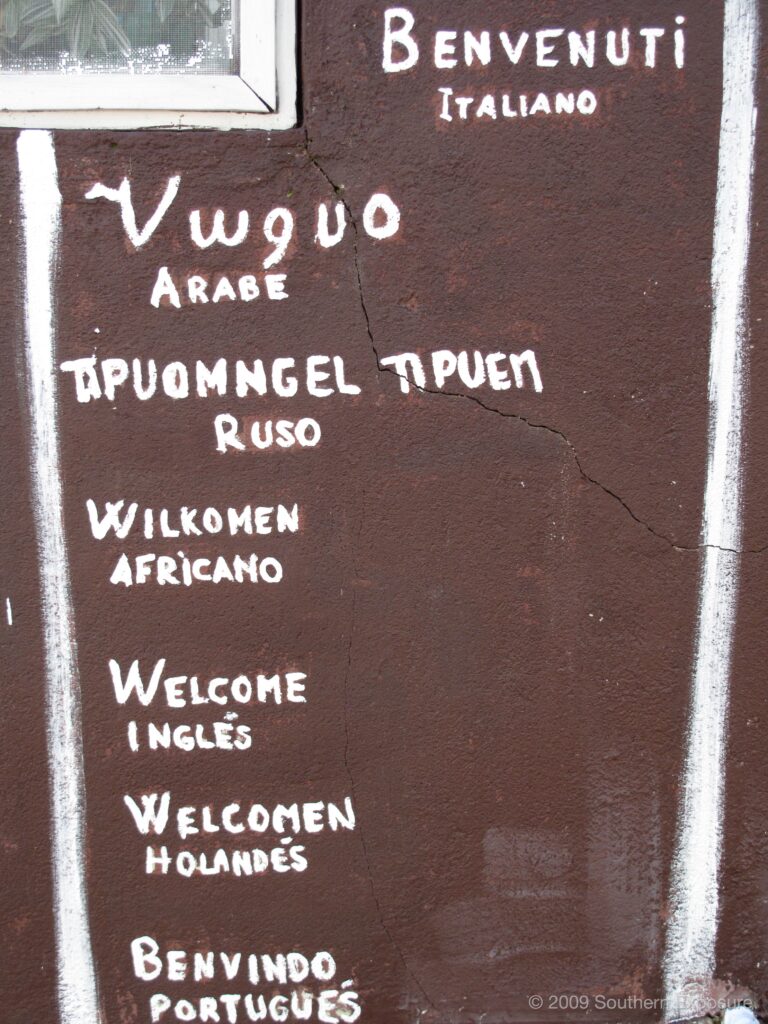 BENVENUTI
ITALIANO
Vwguo
ARABE
TIPUOMNGEL TIPUEM
RUSO
WILKOMEN
AFRICANO
WELCOME
INGLÉS
WELCOMEN
HOLANDÉS
BENVINDO
PORTUGUÉS
© 2009 Southern Exposure.